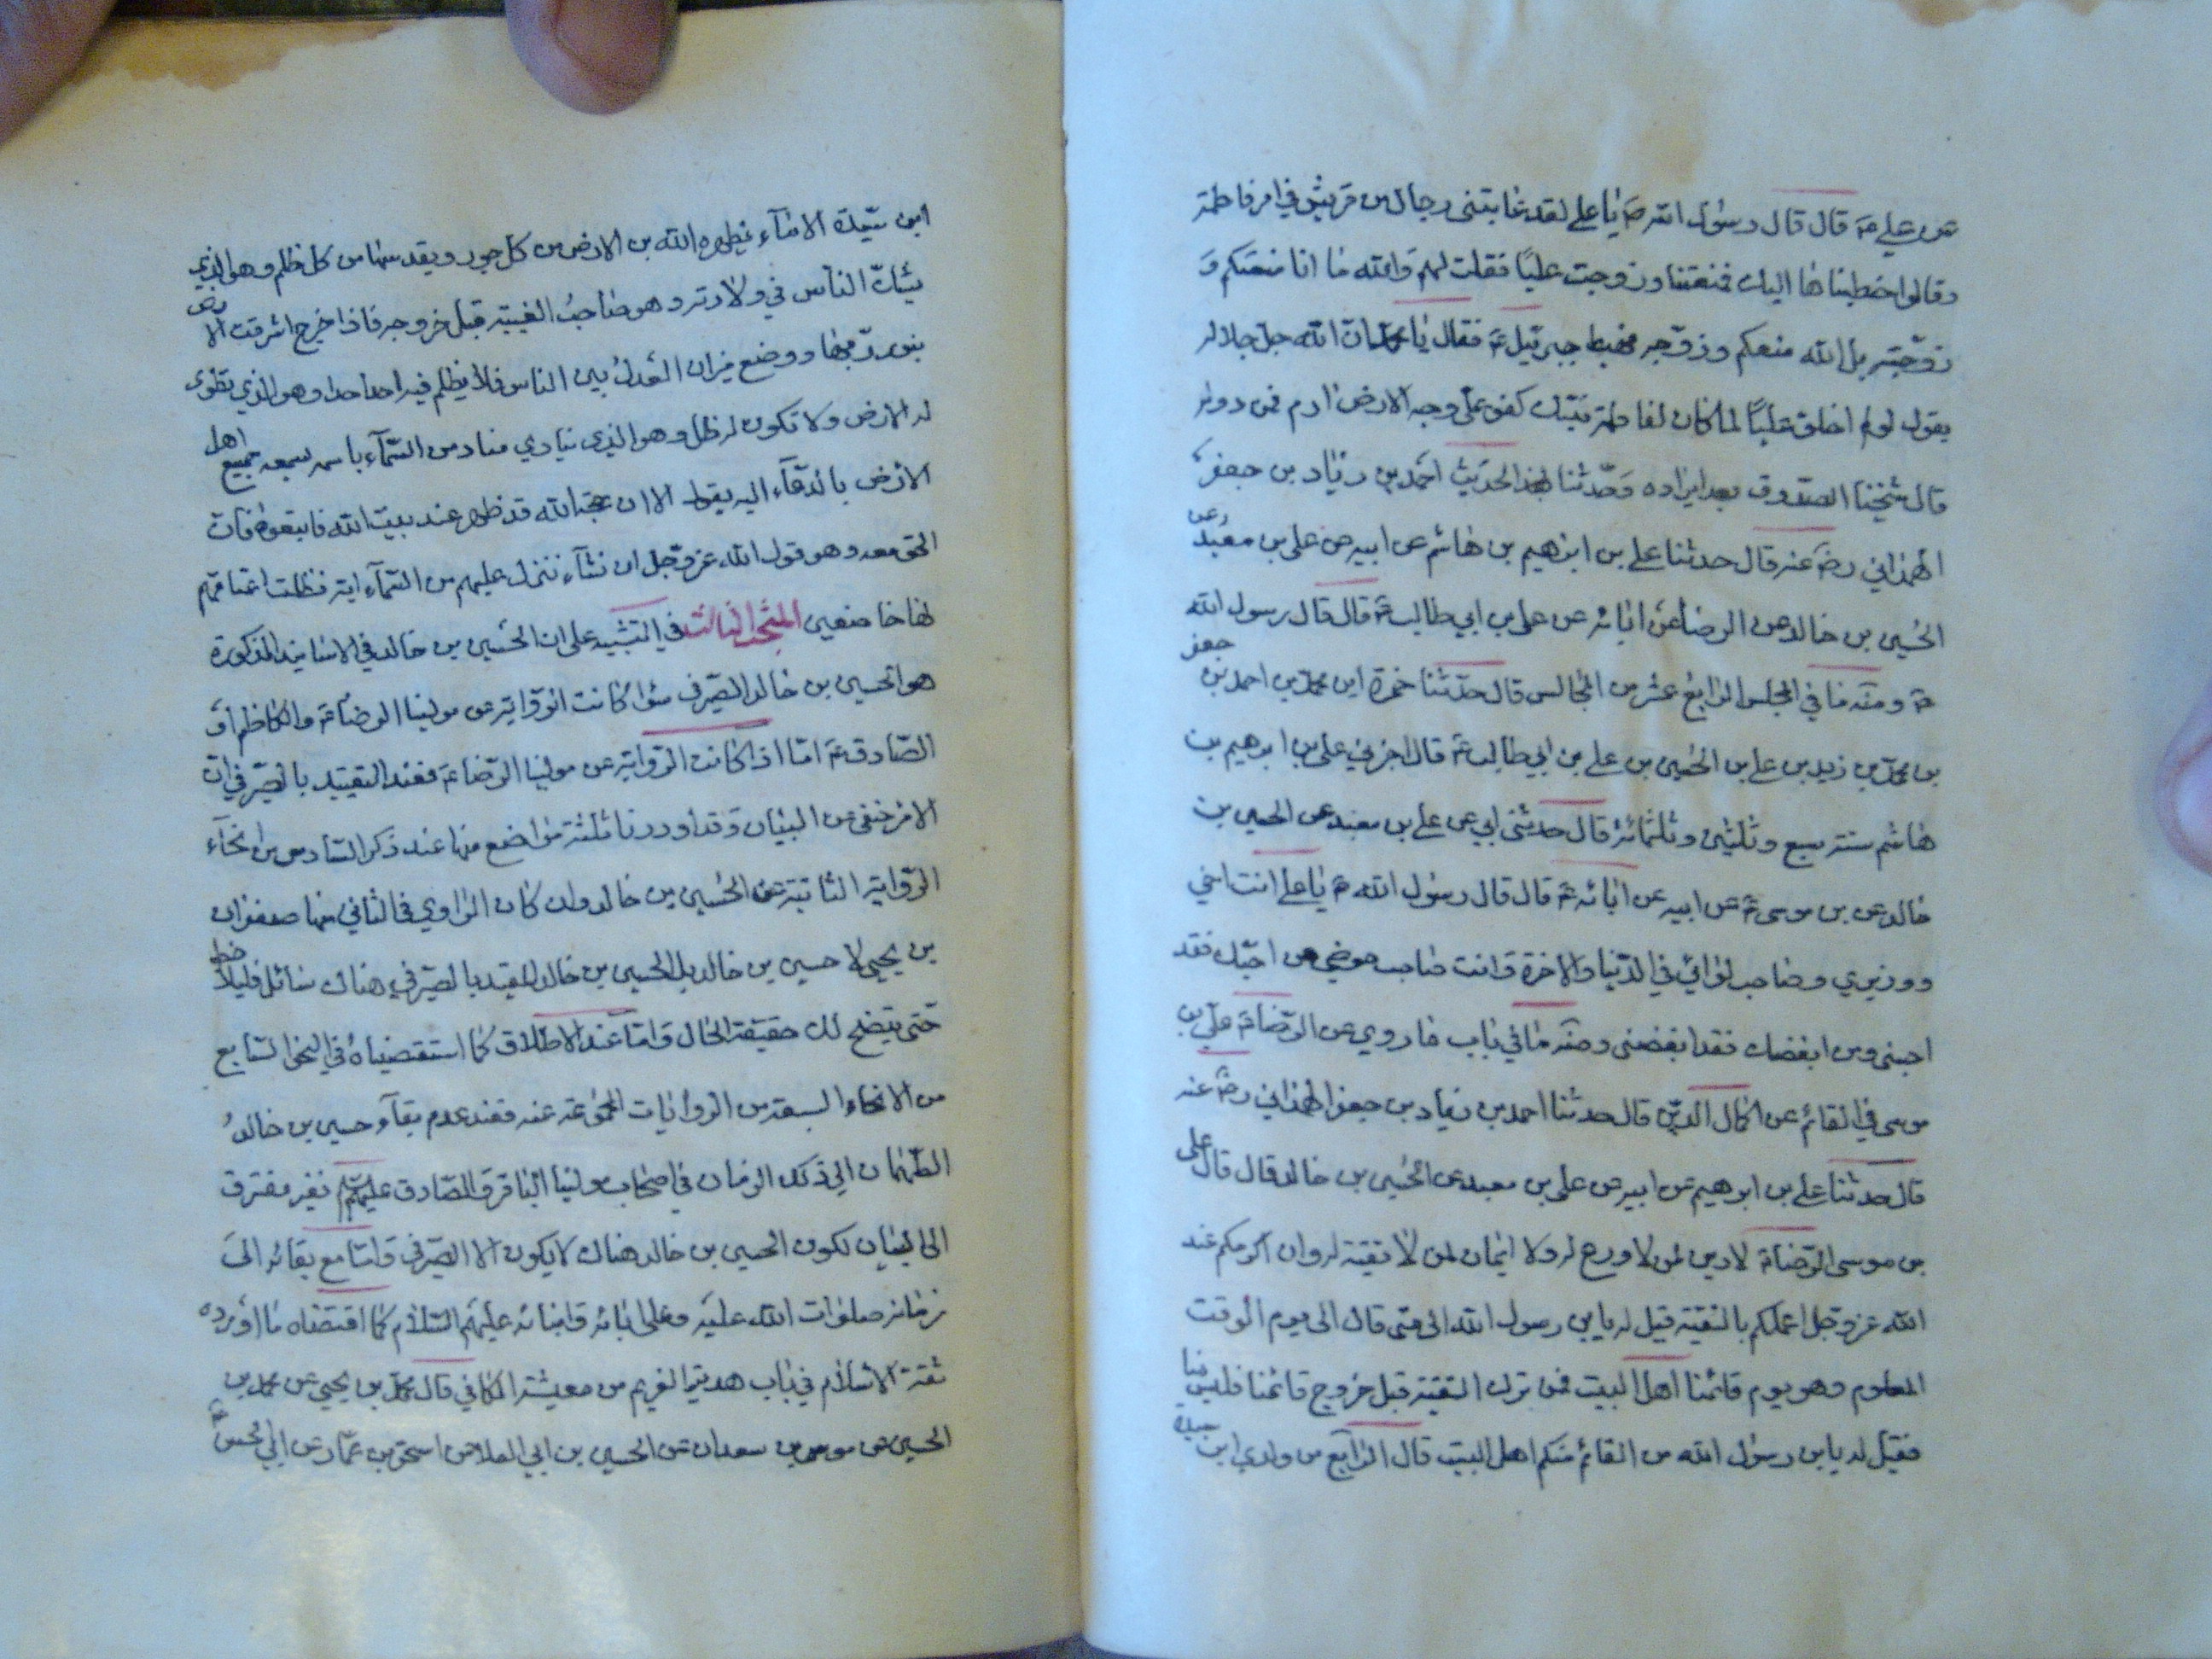 عن علي ع قال قال رسول الله ص يا علي لقد عاتبتني رجال من قريش في امر فاطمة
وقالوا خطبناها اليك فمنعتنا وزوجت عليا فقلت لهم والله ما انا منعتكم و
زوجته بل الله منعكم وزوجه فهبط جبرئيل ع فقال يا محمد ان الله جل جلاله
يقول لو لم اخلق عليا لما كان لفاطمة بنتك كفو على وجه الارض ادم فمن دونه
قال شيخنا الصدوق بعد ايراده وحدثنا بهذا الحديث احمد بن زياد بن جعفر
الهمذاني رض عنه قال حدثنا علي بن ابرهيم بن هاشم عن ابيه عن علي بن معبد عن
الحسين بن خالد عن الرضا عن ابائه عن علي بن ابي طالب ع قال قال رسول الله
ص ومنه ما في المجلس الرابع عشر من المجالس قال حدثنا حمزة ابن محمد بن احمد بن جعفر
بن محمد بن زيد بن علي بن الحسين بن علي بن ابي طالب ع قال اخبرني علي بن ابرهيم بن
هاشم سنة سبع وثلثين وثلثمائة قال حدثني ابي عن علي بن معبد عن الحسين بن
خالد عن بن موسى ع عن ابيه عن ابائه ع قال قال رسول الله ص يا علي انت اخي
ووزيري وصاحب لوائي في الدنيا والاخرة وانت صاحب حوضي من احبك فقد
احبني ومن ابغضك فقد ابغضني ومنه ما في باب ما روي عن الرضا ع علي بن
موسى في القائم عن اكمال الدين قال حدثنا احمد بن زياد بن جعفر الهمذاني رض عنه
قال حدثنا علي بن ابرهيم عن ابيه عن علي بن معبد عن الحسين بن خالد قال قال علي
بن موسى الرضا ع لا دين لمن لا ورع له ولا ايمان لمن لا تقية له وان اكرمكم عند
الله عز وجل اعملكم بالتقية قيل له يابن رسول الله الى متى قال الى يوم الوقت
المعلوم وهو يوم قائمنا اهل البيت فمن ترك التقية قبل خروج قائمنا فليس منا
فقيل له يابن رسول الله من القائم منكم اهل البيت قال الرابع من ولدي ابن سيدة
ابن سيدة الاماء يطهر الله به الارض من كل جور ويقدسها من كل ظلم وهو الذي
يشك الناس في ولادته وهو صاحب الغيبة قبل خروجه فاذا خرج اشرقت الارض
بنور ربها ووضع ميزان العدل بين الناس فلا يظلم فيه احد احدا وهو الذي تطوى
له الارض ولا تكون له ظل وهو الذي ينادي مناد من السماء باسمه يسمعه جميع اهل
الارض بالدعاء اليه يقول الا ان حجة الله قد ظهر عند بيت الله فاتبعوه فان
الحق معه وهو قول الله عز وجل ان نشاء ننزل عليهم من السماء اية فظلت اعناقهم
لها خاضعين المبحث الثالث في التنبيه على ان الحسين بن خالد في الاسانيد المذكورة
هو الحسين بن خالد الصيرفي سواء كانت الرواية عن مولينا الرضا ع والكاظم او
الصادق ع اما اذا كانت الرواية عن مولينا الرضا ع فعند التقييد بالصيرفي ان
الامر خفي عن البيان وقد اوردنا ثلثة مواضع منها عند ذكر السادس من انحاء
الرواية الثابتة عن الحسين بن خالد وان كان الراوي في الثاني منها صفوان
بن يحيى لا حسين بن خالد بل الحسين بن خالد المقيد بالصيرفي هناك سائل فليلاحظ
حتى يتضح لك حقيقة الحال واما عند الاطلاق كما استقصيناه في النحو السابع
من الانحاء السبعة من الروايات عنه فعند عدم بقاء حسين بن خالد
الطهمان الى ذلك الزمان في اصحاب مولينا الباقر والصادق عليهم السلم نفير مفترق
الى البيان لكون الحسين بن خالد هناك لا يكون الا الصيرفي واما مع بقائه الى
زمانه صلوات الله عليه وعلى ابائه وابنائه عليهم السلام كما اقتضاه ما اورده
ثقة الاسلام في باب هدية الغريم من معيشة الكافي قال محمد بن يحيى عن محمد بن
الحسين عن موسى بن سعدان عن الحسين بن ابي العلا عن اسحق بن عمار عن ابي الحسن